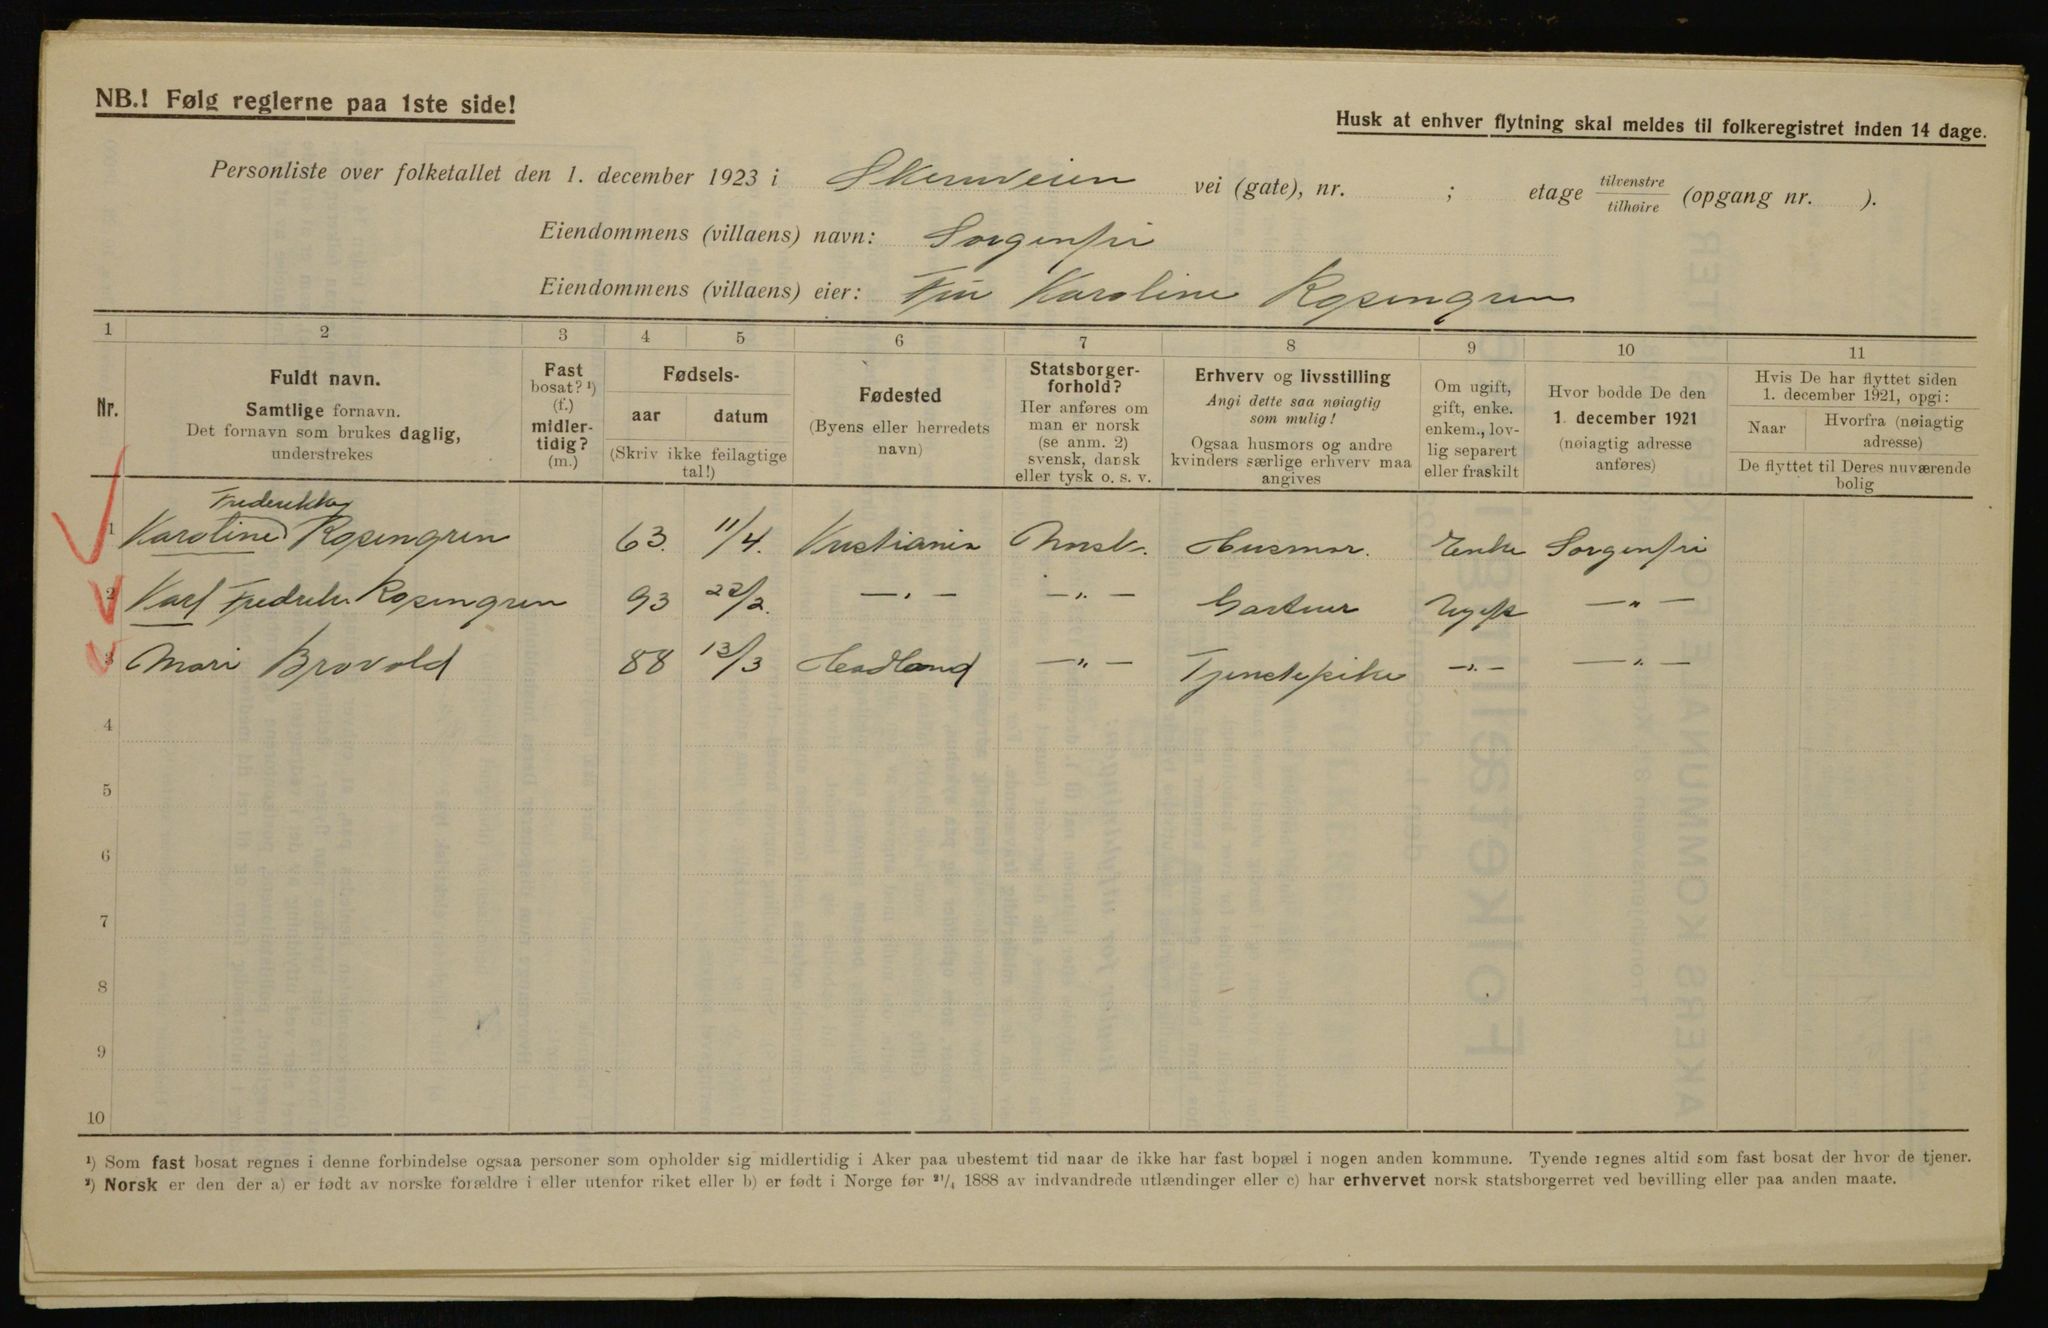 NB.! Følg reglerne paa 1ste side!
Husk at enhver flytning skal meldes til folkeregistret inden 14 dage.
Personliste over folketallet den 1. december 1923 i Skerrveien vei (gate), nr. ; etage tilvenstre tilhøire (opgang nr. ).
Eiendommens (villaens) navn: Sorgenfri
Eiendommens (villaens) eier: Fru Karoline Rosengren
1 2 3 4 5 6 7 8 9 10 11
Nr.
Fuldt navn.
Samtlige fornavn.
Det fornavn som brukes daglig,
understrekes
Fast
bosat? ¹)
(f.)
midler-
tidig?
(m.)
Fødsels-
aar datum
(Skriv ikke feilagtige
tal!)
Fødested
(Byens eller herredets
navn)
Statsborger-
forhold?
Her anføres om
man er norsk
(se anm. 2)
svensk, dansk
eller tysk o. s. v.
Erhverv og livsstilling
Angi dette saa nøiagtig
som mulig!
Ogsaa husmors og andre
kvinders særlige erhverv maa
angives
Om ugift,
gift, enke.
enkem., lov-
lig separert
eller fraskilt
Hvor bodde De den
1. december 1921
(nøiagtig adresse
anføres)
Hvis De har flyttet siden
1. december 1921, opgi:
Naar
Hvorfra (nøiagtig
adresse)
De flyttet til Deres nuværende
bolig
Frederikke
1 Karoline Rosengren 63. 11/4. Kristiania Norsk. Husmor. Enke Sorgenfri
2 Karl Fredrik Rosengren 93 22/2. —"— —"— Gartner Ugift —"—
3 Mari Brovold 88 13/3 Hadland —"— Tjenestepike —"— —"—
4
5
6
7
8
9
10
¹) Som fast bosat regnes i denne forbindelse ogsaa personer som opholder sig midlertidig i Aker paa ubestemt tid naar de ikke har fast bopæl i nogen anden kommune. Tyende regnes altid som fast bosat der hvor de tjener.
²) Norsk er den der a) er født av norske forældre i eller utenfor riket eller b) er født i Norge før ²¹/₄ 1888 av indvandrede utlændinger eller c) har erhvervet norsk statsborgerret ved bevilling eller paa anden maate.